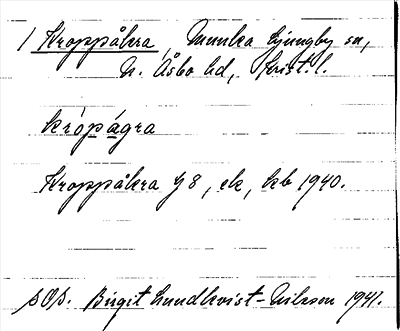 1 Kroppåkra, Munka Ljungby sn,
N. Åsbo hd, Krist. l.
krópágra
Kroppåkra g 8, ek, kb 1940.
SOS. Birgit Lundkvist-Nilsson 1941.